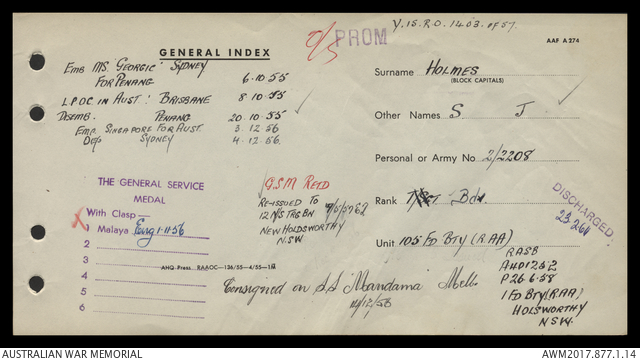 Y.15.R.O. 1403 of 57.
PROM
AAF A 274
GENERAL INDEX
Emb MS. Georgic: Sydney
For Penang 6.10.55
L.P.O.C. in Aust: Brisbane 8.10.55
Disemb. Penang 20.10.55
Emp. Singapore For Aust. 3.12.56
Dep Sydney 4.12.56.
Surname HOLMES
(BLOCK CAPITALS)
Other Names S J
Personal or Army No. 2/2208
Rank Bdr
Unit 105 FD BTY (RAA)
DISCHARGED
23.2.61
THE GENERAL SERVICE
MEDAL
With Clasp
1 Malaya Eng 1-11-56
2
3
4
5
6
G.S.M Retd
Re-issued to
12 N/S TRG BN
New Holdsworthy
N.S.W
AHQ Press RAAOC—136/55—4/55—1M
Consigned on S.S. Mandama Melb.
RASB
AHQ1262
P26.6.58
1 FD BTY (RAA)
HOLSWORTHY
N.S.W.
AUSTRALIAN WAR MEMORIAL
AWM2017.877.1.14